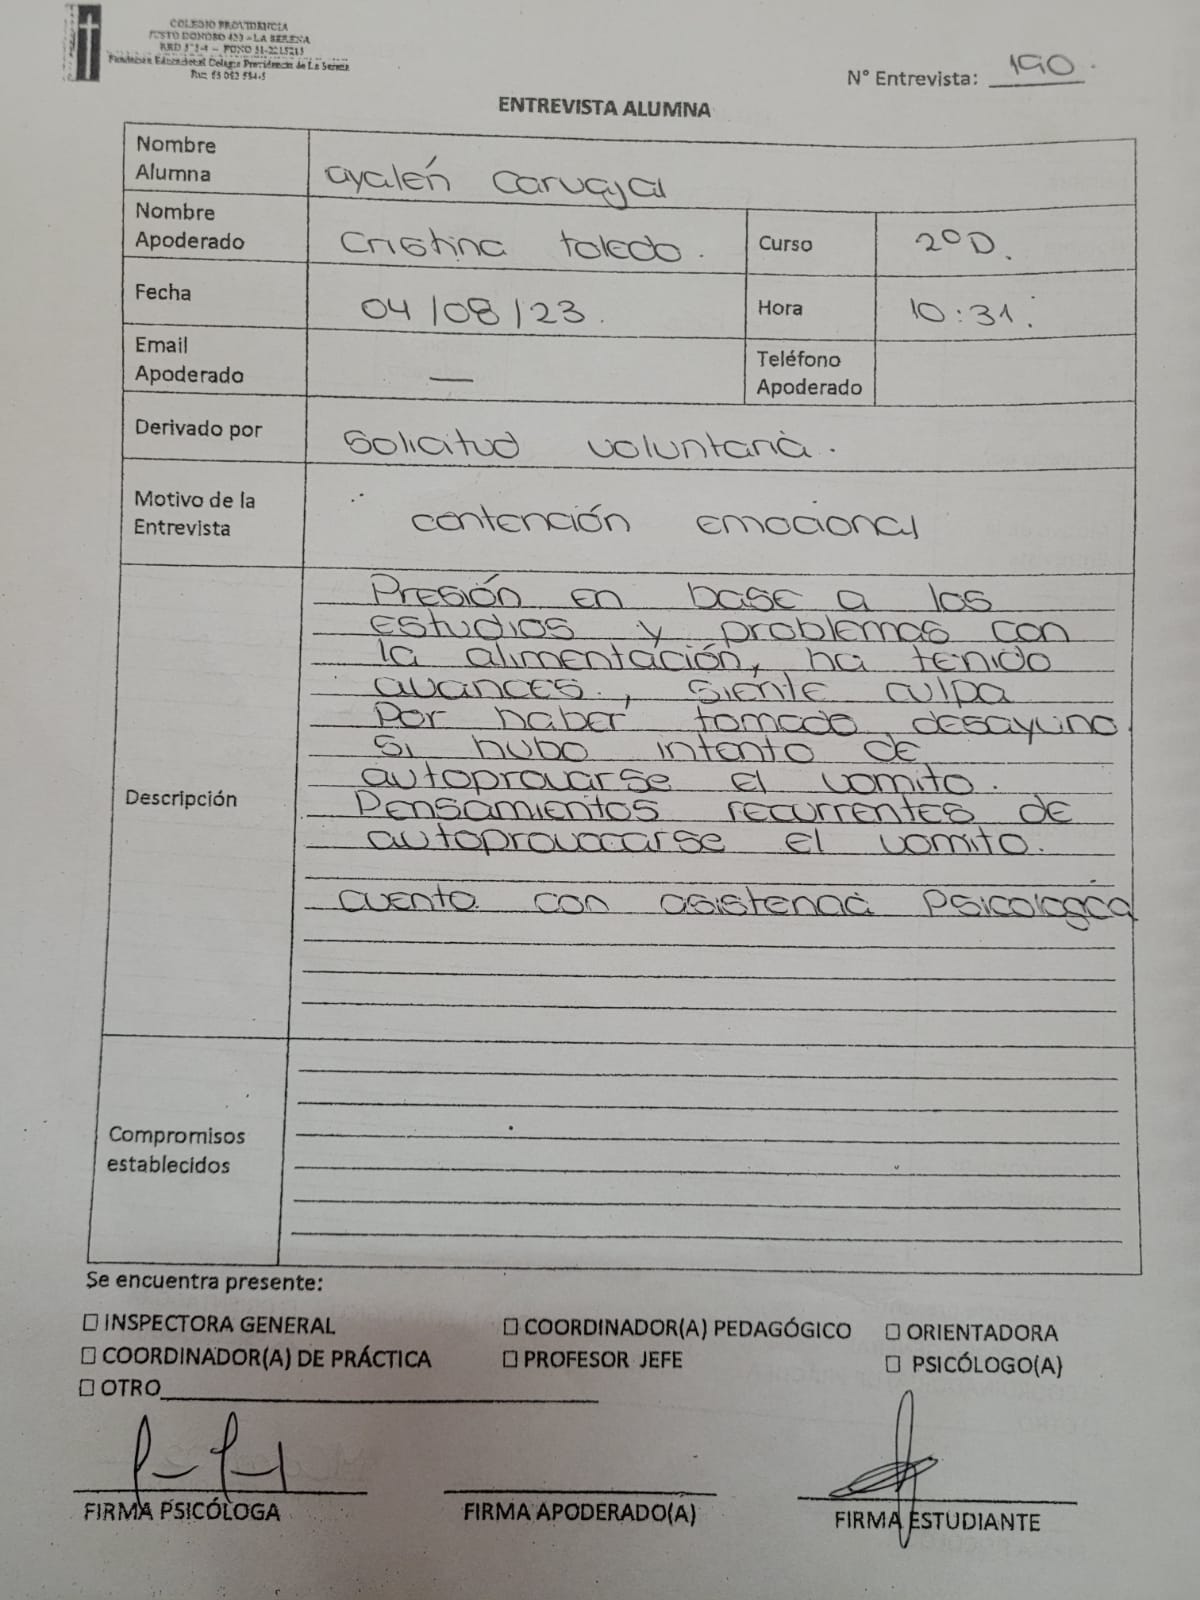 COLEGIO PROVIDENCIA
JUSTO DONOSO 420 - LA SERENA
Fundación Educacional Colegio Providencia de La Serena
N° Entrevista: 190.
ENTREVISTA ALUMNA
Nombre Alumna
ayalén Carvajal
Nombre Apoderado
Cristina toledo.
Curso
2°D.
Fecha
04/08/23.
Hora
10:31.
Email Apoderado
—
Teléfono Apoderado
Derivado por
Solicitud voluntaria.
Motivo de la Entrevista
contención emocional
Descripción
Presión en base a los
estudios y problemas con
la alimentación, ha tenido
avances., siente culpa
Por haber tomado desayuno
Si hubo intento de
autoprovarse el vomito.
Pensamientos recurrentes de
autoprovocarse el vomito.
cuenta con asistencia Psicologica
Compromisos establecidos
Se encuentra presente:
☐ INSPECTORA GENERAL ☐ COORDINADOR(A) PEDAGÓGICO ☐ ORIENTADORA
☐ COORDINADOR(A) DE PRÁCTICA ☐ PROFESOR JEFE ☐ PSICÓLOGO(A)
☐ OTRO
FIRMA PSICÓLOGA FIRMA APODERADO(A) FIRMA ESTUDIANTE